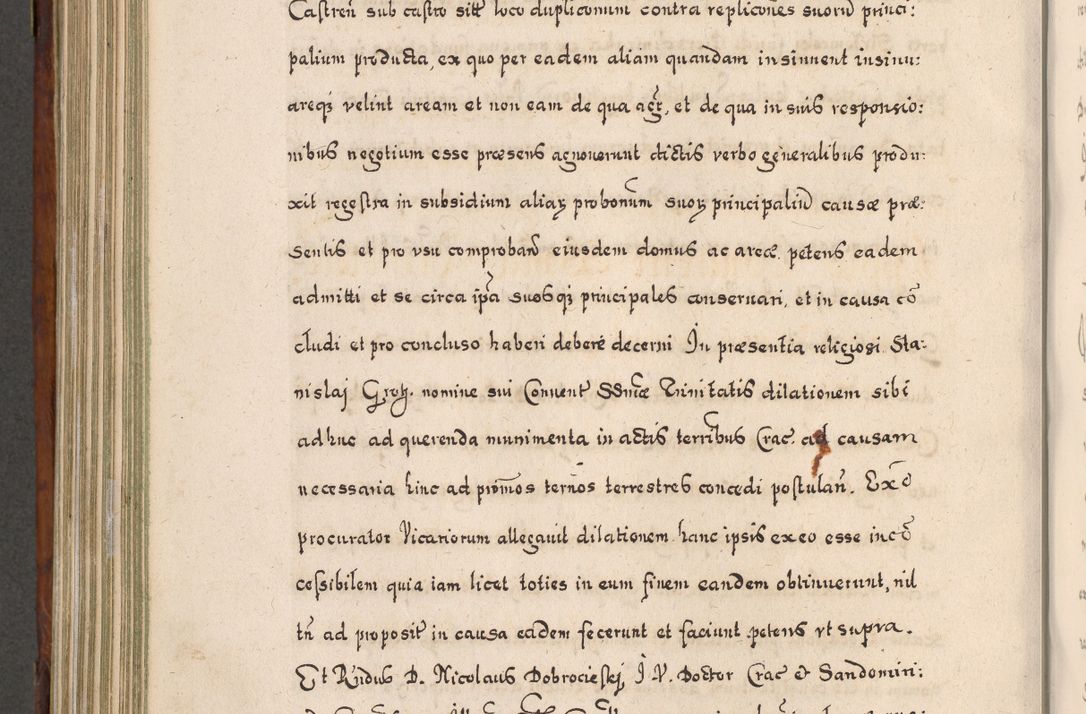 Castreñ sub castro sitt loco duplicationum contra replicões suorũ princi:
palium producta, ex quo per eadem aliam quandam insinuent insinu:
areqz velint aream et non eam de qua agr, et de qua in suis responsio:
nibus negotium esse præsens agnoverunt dictis verbo generalibus produ:
xit regestra in subsidium aliaꝝ probonum suoꝝ principaliũ causæ præ:
sentis et pro vsu comproban̄ eiusdem domus ac areæ. petens eadem
admitti et se circa ipa suosqz principales conservari, et in causa cõ
cludi et pro concluso haberi debere decerni In præsentia religiosi Sta:
nislaj Groh. nomine sui Convent SSmæ Trinitatis dilationem sibi
adhuc ad querenda munimenta in actis terribus Crac. ad causam
necessaria hinc ad primos ternos terrestres concedi postulan̄. Ex õ
procurator Vicariorum allegavit dilationem hanc ipsis ex eo esse incõ
cessibilem quia iam licet toties in eum finem eandem obtinuerunt, nil
tñ ad proposit in causa eadem fecerunt et faciunt petens vt supra.
Et Rñdus D. Nicolaus Dobrocieskj, I V. Doctor Crac et Sandomiri: